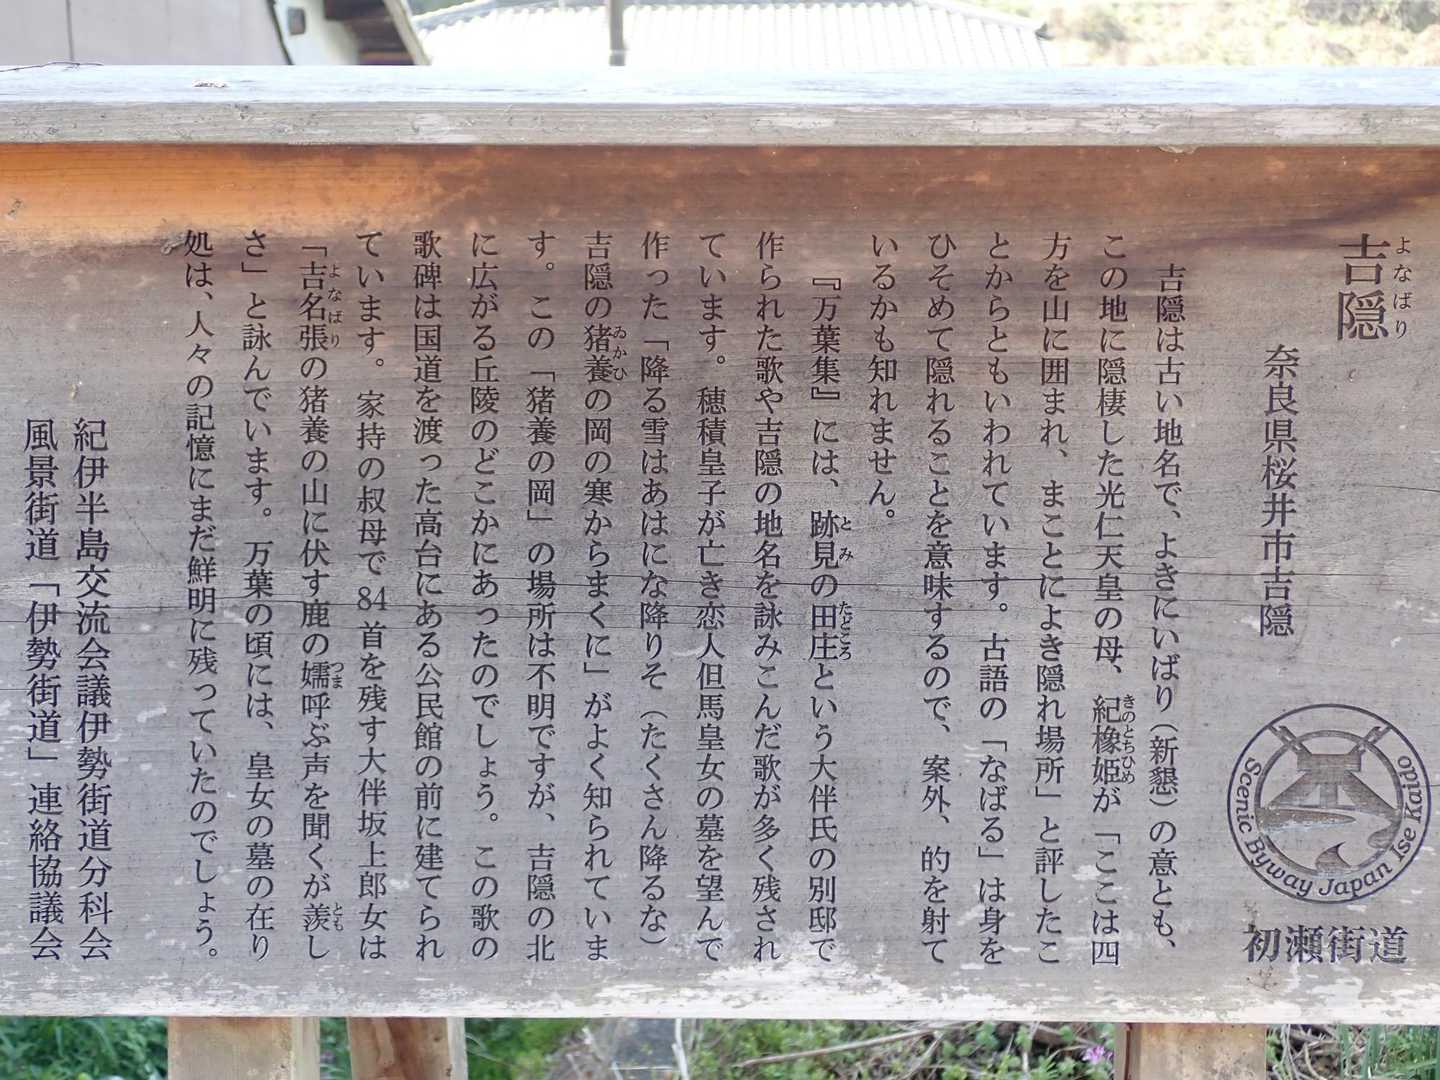 吉隠
よなばり
奈良県桜井市吉隠
Scenic Byway Japan Ise Kaido
初瀬街道
吉隠は古い地名で、よきにいばり（新懇）の意とも、
この地に隠棲した光仁天皇の母、紀橡姫が「ここは四
きのとちひめ
方を山に囲まれ、まことによき隠れ場所」と評したこ
とからともいわれています。古語の「なばる」は身を
ひそめて隠れることを意味するので、案外、的を射て
いるかも知れません。
『万葉集』には、跡見の田庄という大伴氏の別邸で
とみ
たどころ
作られた歌や吉隠の地名を詠みこんだ歌が多く残され
ています。穂積皇子が亡き恋人但馬皇女の墓を望んで
作った「降る雪はあはにな降りそ（たくさん降るな）
吉隠の猪養の岡の寒からまくに」がよく知られていま
ゐかひ
す。この「猪養の岡」の場所は不明ですが、吉隠の北
に広がる丘陵のどこかにあったのでしょう。この歌の
歌碑は国道を渡った高台にある公民館の前に建てられ
ています。家持の叔母で84首を残す大伴坂上郎女は
「吉名張の猪養の山に伏す鹿の嬬呼ぶ声を聞くが羨し
よなばり
つま
とも
さ」と詠んでいます。万葉の頃には、皇女の墓の在り
処は、人々の記憶にまだ鮮明に残っていたのでしょう。
紀伊半島交流会議伊勢街道分科会
風景街道「伊勢街道」連絡協議会